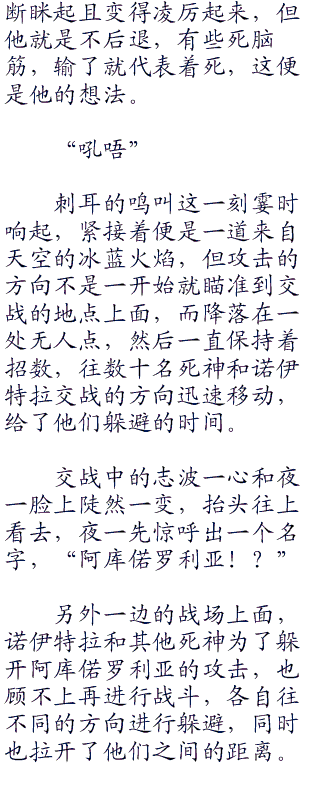 断眯起且变得凌厉起来，但
他就是不后退，有些死脑
筋，输了就代表着死，这便
是他的想法。
“吼唔”
刺耳的鸣叫这一刻霎时
响起，紧接着便是一道来自
天空的冰蓝火焰，但攻击的
方向不是一开始就瞄准到交
战的地点上面，而降落在一
处无人点，然后一直保持着
招数，往数十名死神和诺伊
特拉交战的方向迅速移动，
给了他们躲避的时间。
交战中的志波一心和夜
一脸上陡然一变，抬头往上
看去，夜一先惊呼出一个名
字，“阿库偌罗利亚！？”
另外一边的战场上面，
诺伊特拉和其他死神为了躲
开阿库偌罗利亚的攻击，也
顾不上再进行战斗，各自往
不同的方向进行躲避，同时
也拉开了他们之间的距离。